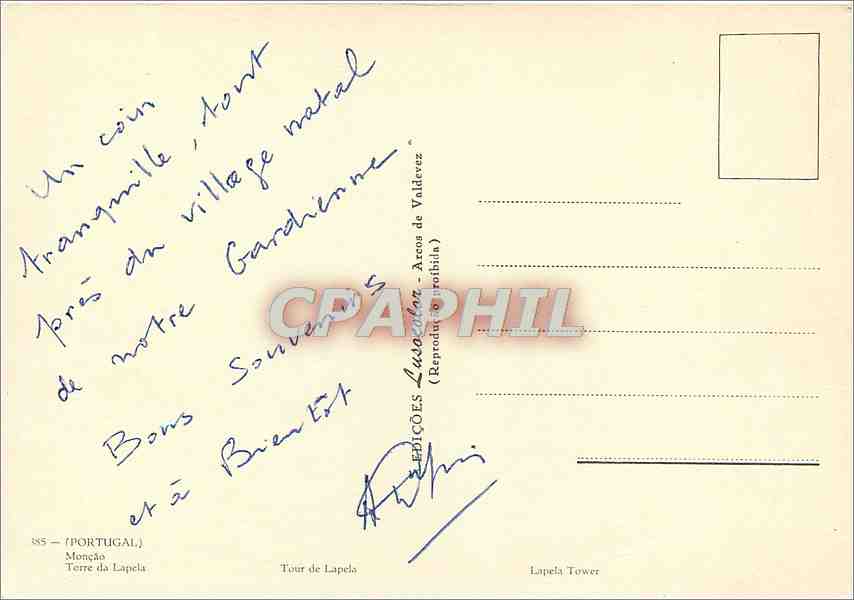 Un coin
tranquille, tout
près du village natal
de notre Gardienne
Bons Souvenirs
et à Bientôt
385 — (PORTUGAL)
Monção
Torre da Lapela
Tour de Lapela
Lapela Tower
EDIÇÕES Lusocolor - Arcos de Valdevez
(Reprodução proibida)
CPAPHIL